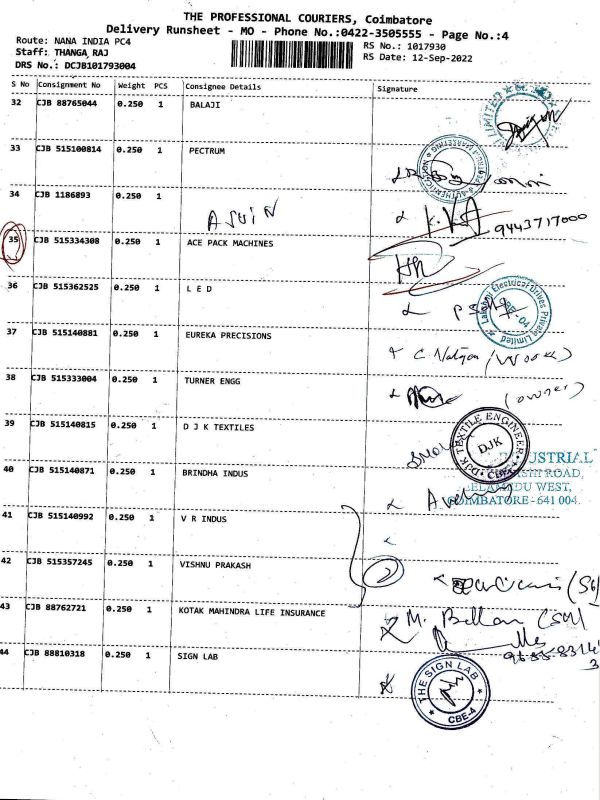 THE PROFESSIONAL COURIERS, Coimbatore
Delivery Runsheet - MO - Phone No.:0422-3505555 - Page No.:4
Route: NANA INDIA PC4
RS No.: 1017930
Staff: THANGA RAJ
RS Date: 12-Sep-2022
DRS No.: DCJB101793004
S No Consignment No Weight PCS Consignee Details Signature
32 CJB 88765044 0.250 1 BALAJI
LIMITED
33 CJB 515100814 0.250 1 PECTRUM
34 CJB 1186893 0.250 1
9443717000
35 CJB 515334308 0.250 1 ACE PACK MACHINES
36 CJB 515362525 0.250 1 L E D
Lakshmi Electrical Drives Private Limited
37 CJB 515140881 0.250 1 EUREKA PRECISIONS
38 CJB 515333004 0.250 1 TURNER ENGG
(owner)
39 CJB 515140815 0.250 1 D J K TEXTILES
DJK TEXTILE ENGINEER
DJK
CBE-4
DUSTRIAL
ROAD,
WEST,
COIMBATORE - 641 004.
40 CJB 515140871 0.250 1 BRINDHA INDUS
41 CJB 515140992 0.250 1 V R INDUS
42 CJB 515357245 0.250 1 VISHNU PRAKASH
43 CJB 88762721 0.250 1 KOTAK MAHINDRA LIFE INSURANCE
44 CJB 88810318 0.250 1 SIGN LAB
THE SIGN LAB
CBE-4